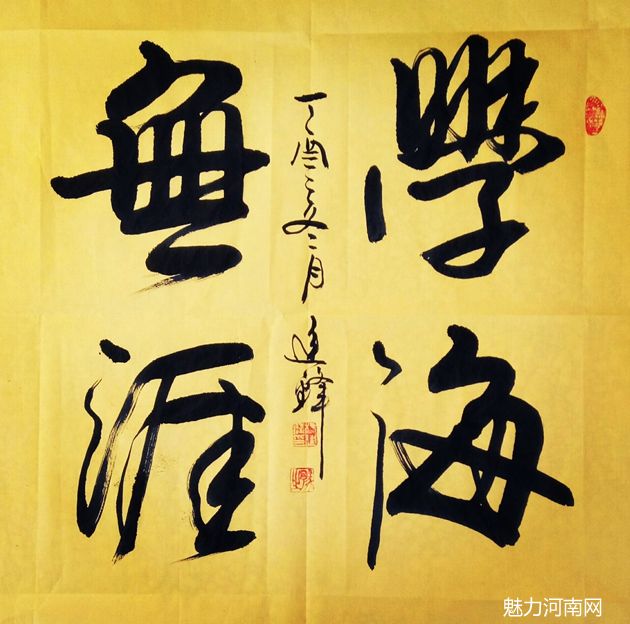 學海
無涯
丁酉二月
魅力河南网